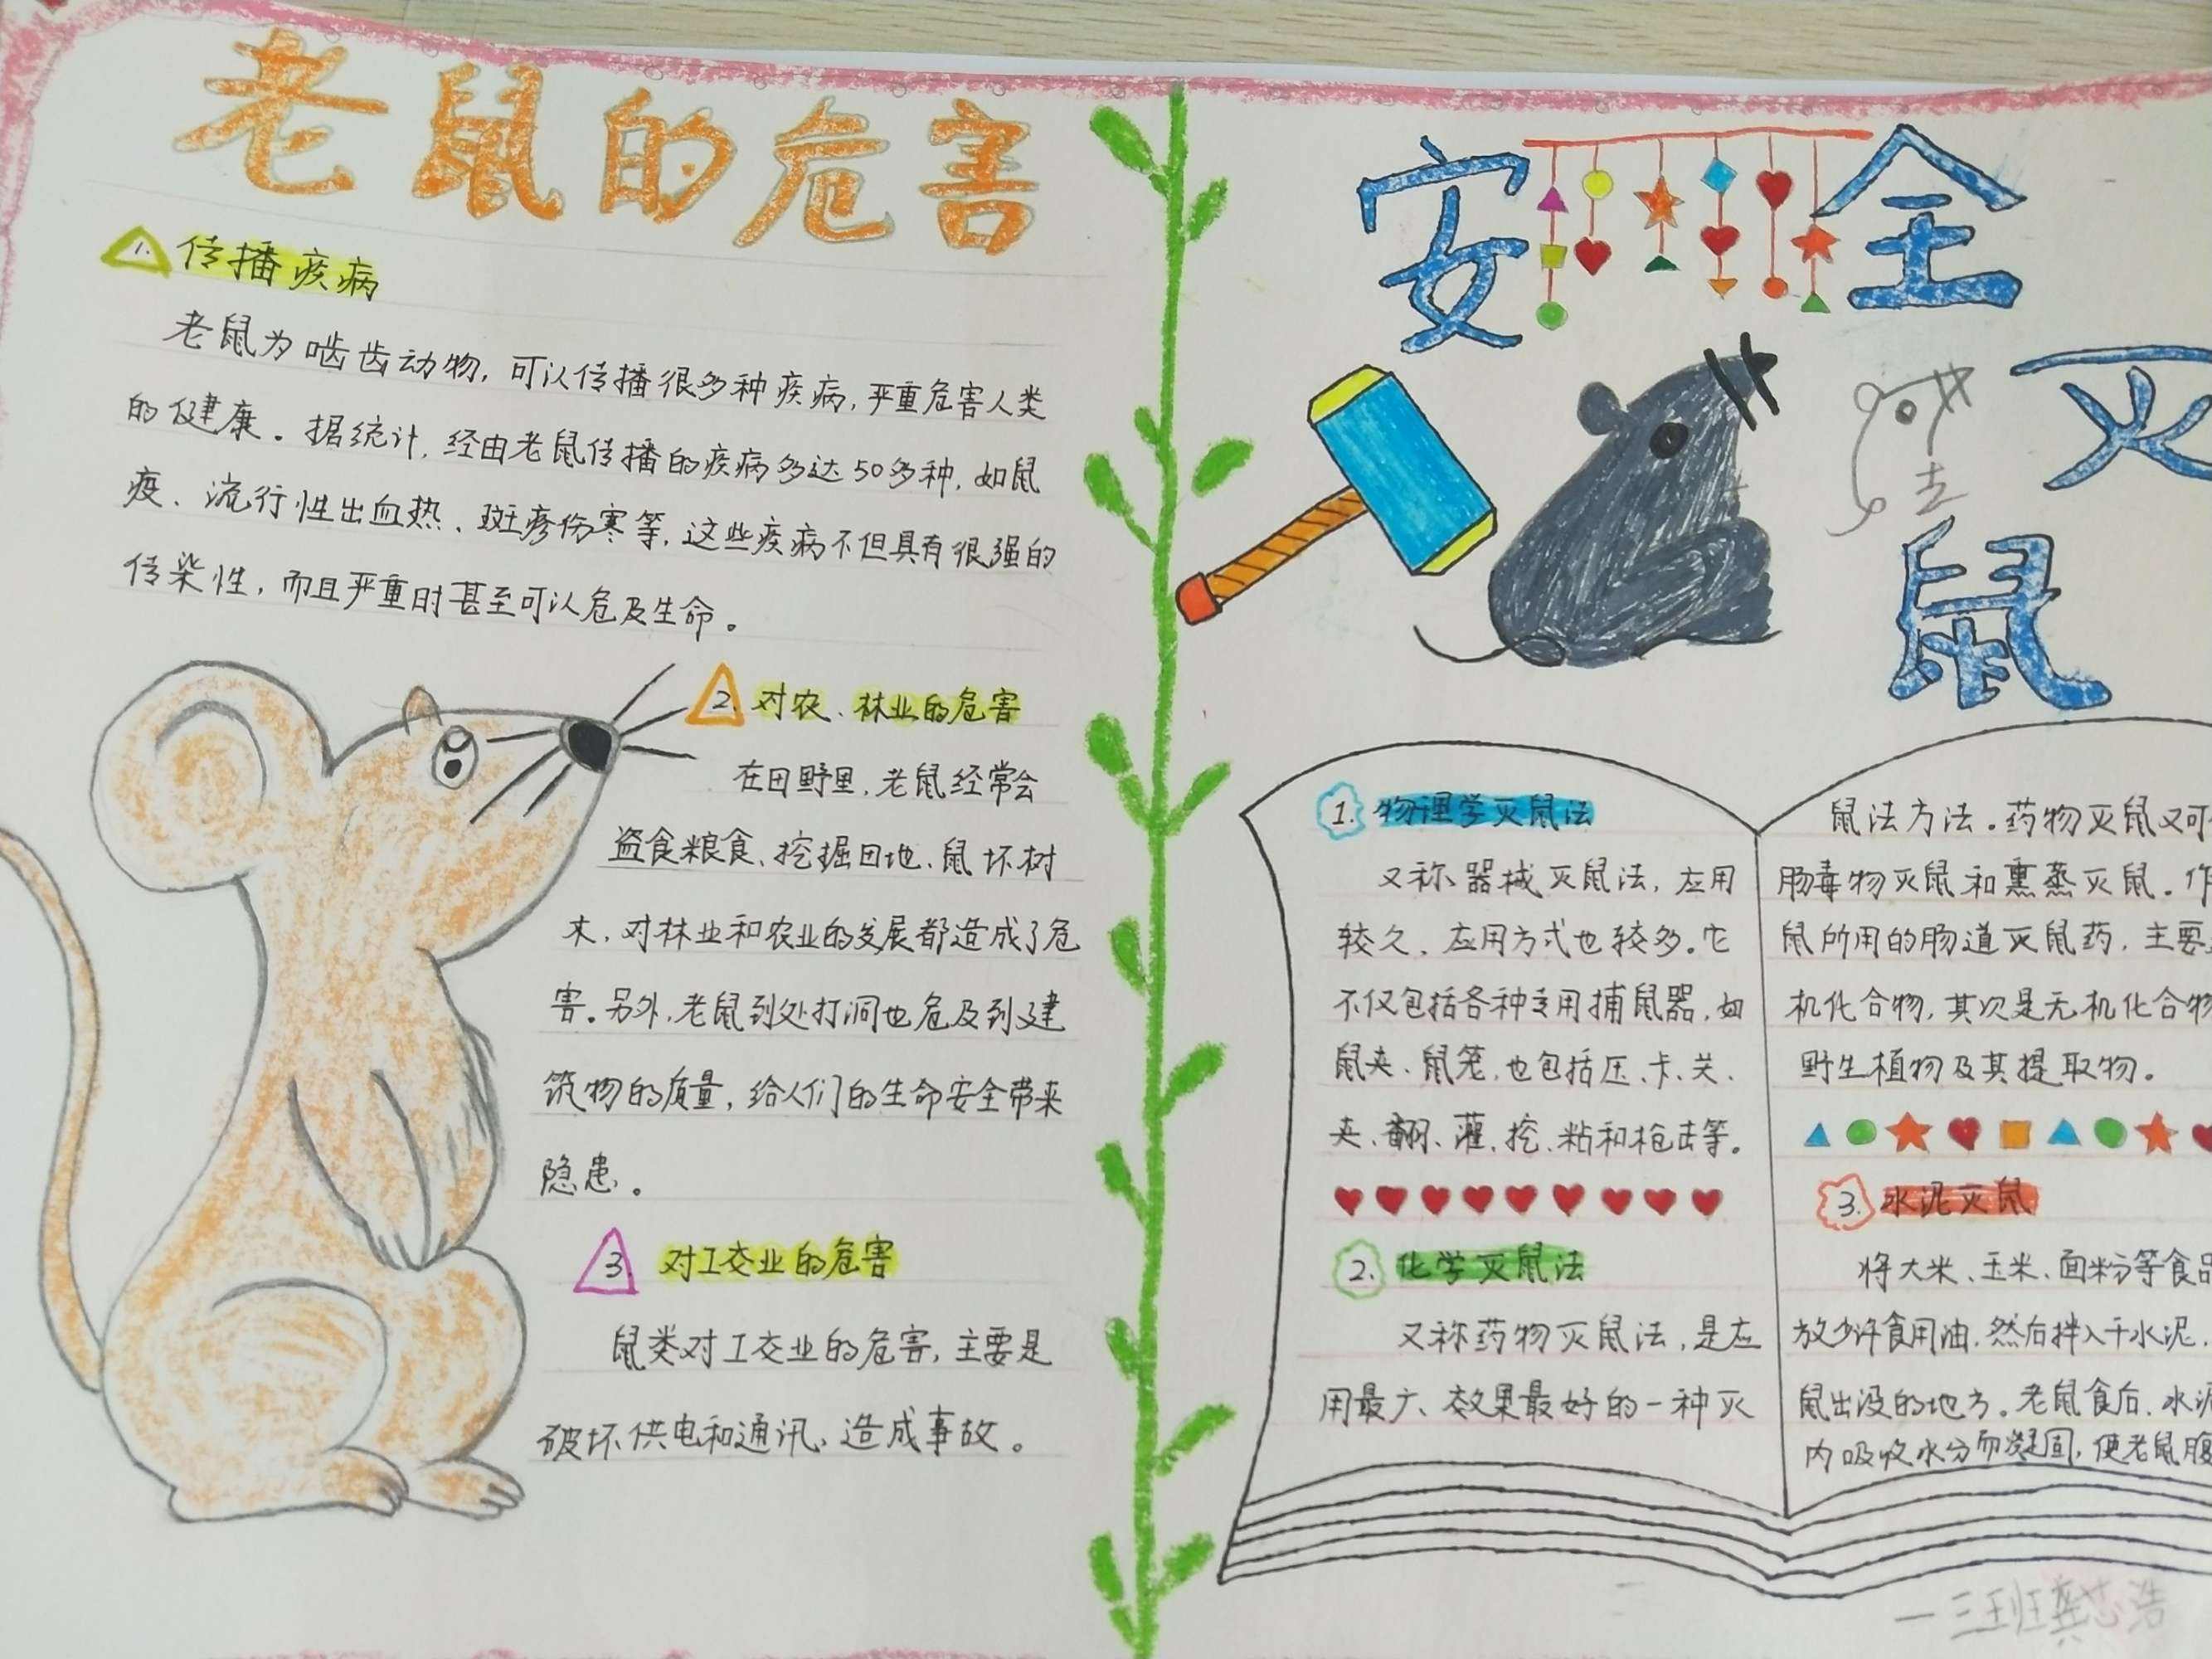 老鼠的危害
1. 传播疾病
老鼠为啮齿动物，可以传播很多种疾病，严重危害人类
的健康。据统计，经由老鼠传播的疾病多达50多种，如鼠
疫、流行性出血热、斑疹伤寒等，这些疾病不但具有很强的
传染性，而且严重时甚至可以危及生命。
2. 对农、林业的危害
在田野里，老鼠经常会
盗食粮食、挖掘田地、鼠坏树
木，对林业和农业的发展都造成了危
害。另外，老鼠到处打洞也危及到建
筑物的质量，给人们的生命安全带来
隐患。
3. 对工交业的危害
鼠类对工交业的危害，主要是
破坏供电和通讯、造成事故。
安全
灭
鼠
去
1. 物理学灭鼠法
又称器械灭鼠法，应用
较久、应用方式也较多。它
不仅包括各种专用捕鼠器，如
鼠夹、鼠笼，也包括压、卡、关、
夹、翻、灌、挖、粘和枪击等。
2. 化学灭鼠法
又称药物灭鼠法，是应
用最广、效果最好的一种灭
鼠法方法。药物灭鼠又可
肠毒物灭鼠和熏蒸灭鼠。作
鼠所用的肠道灭鼠药，主要
机化合物，其次是无机化合物
野生植物及其提取物。
3. 水泥灭鼠
将大米、玉米、面粉等食品
放少许食用油，然后拌入干水泥，
鼠出没的地方。老鼠食后，水泥
内吸收水分而凝固，使老鼠腹
一三班龚芯浩